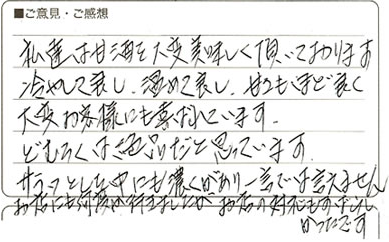 ■ご意見・ご感想
私達は甘酒を大変美味しく頂いております
冷やして良し、温めて良し、甘さもほど良く
大変お客様にも喜ばれています。
どぶろくは絶品だと思っています。
サラッとした中にも濃くがあり一言では言えません
お店にも何度か行きましたが お店の対応もすばらし
かったです